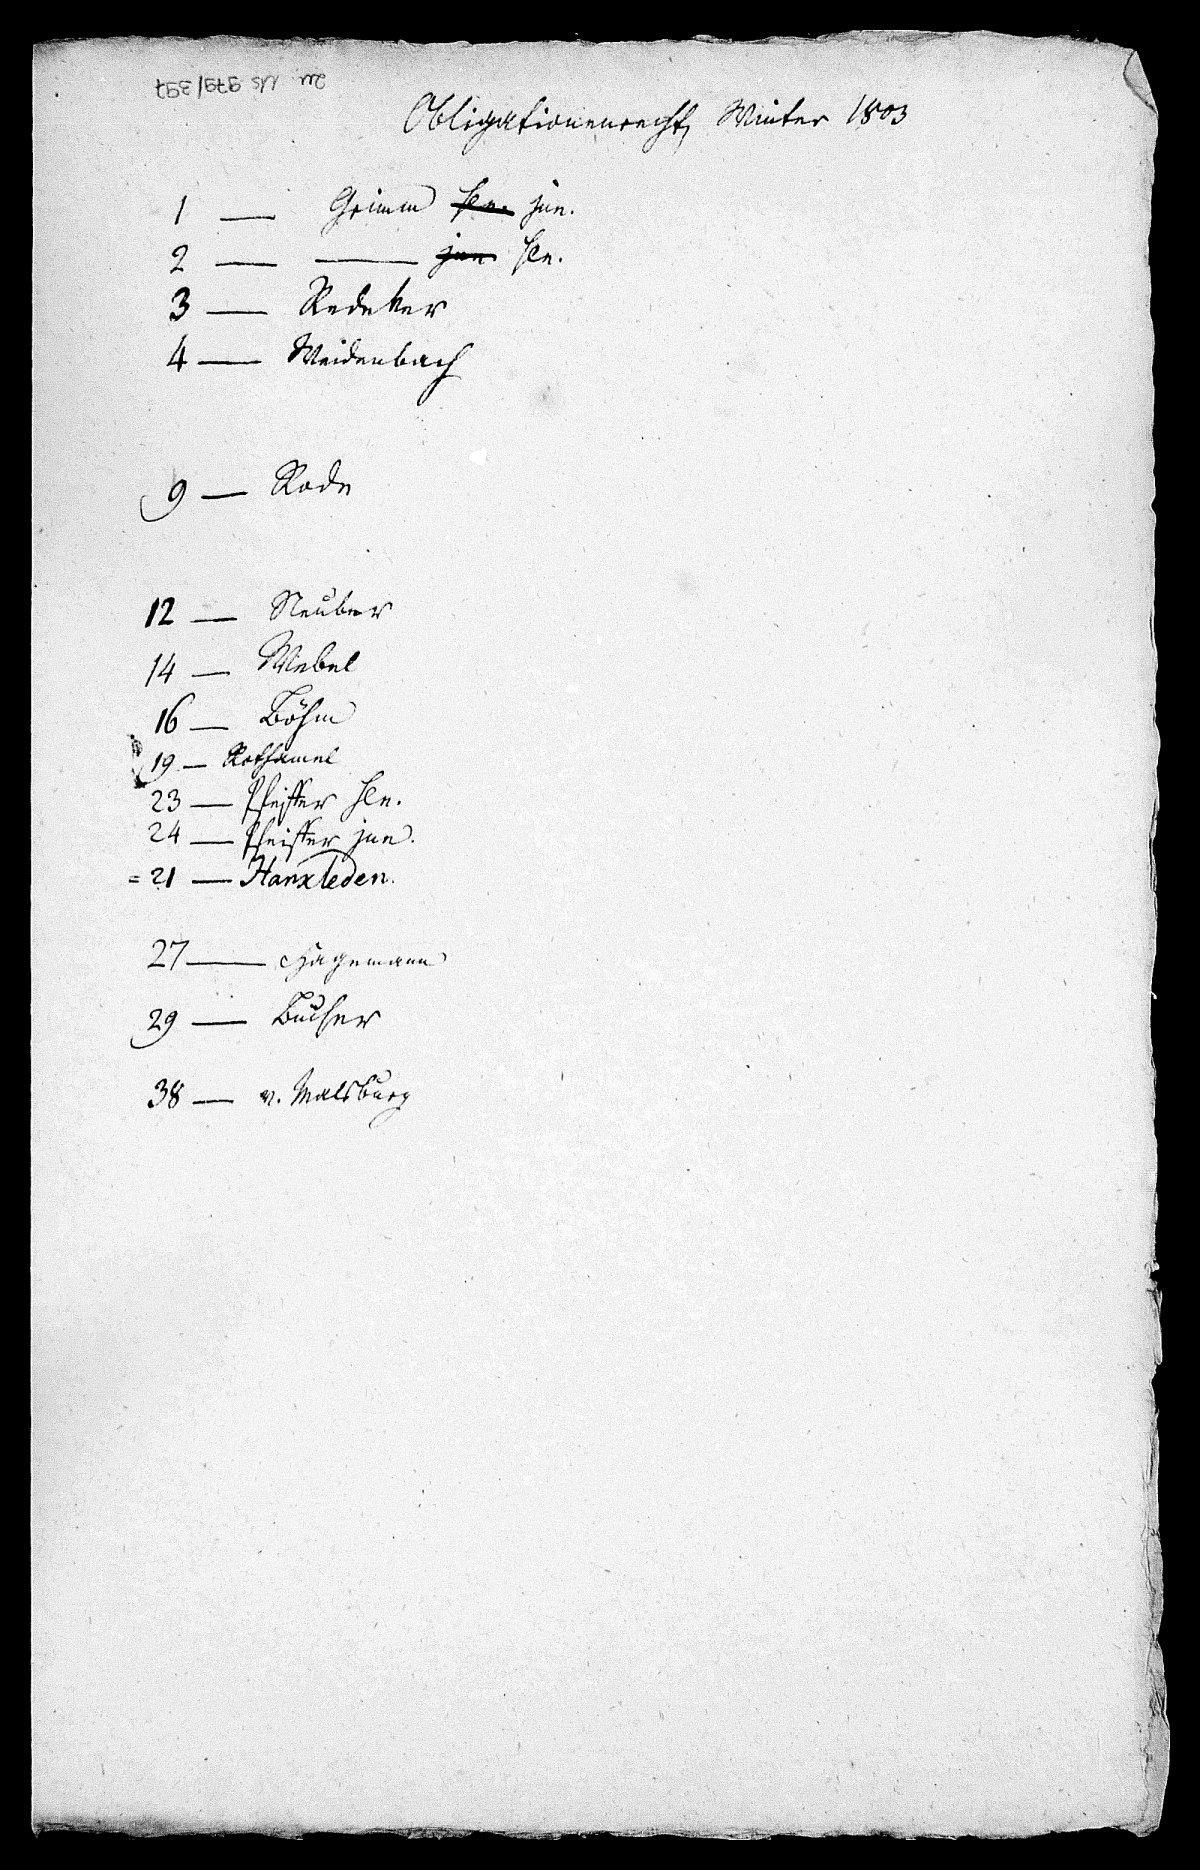 zu Ms 979/397
Obligationenrecht, Winter 1803
1 — Grimm sen. jun.
2 — —— jun. sen.
3 — Redeker
4 — Weidenbach
9 — Rode
12 — Neuber
14 — Webel
16 — Böhm
19 — Rothamel
23 — Pfeiffer sen.
24 — Pfeiffer jun.
= 21 — Hanxleden.
27 — Hagemann
29 — Bucher
38 — v. Malsburg